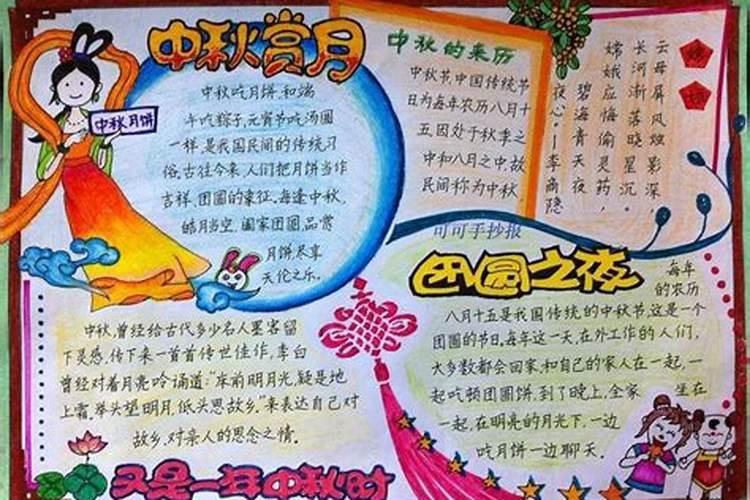 中秋赏月
中秋月饼
中秋吃月饼,和端
午吃粽子,元宵节吃汤圆
一样,是我国民间的传统习
俗,古往今来,人们把月饼当作
吉祥,团圆的象征,每逢中秋,
皓月当空,阖家团圆,品赏
月饼尽享
天伦之乐。
中秋的来历
中秋节中国传统节
日为每年农历八月十
五,因处于秋季之
中和八月之中,故
民间称为中秋
嫦娥
云母屏风烛影深,
长河渐落晓星沉。
嫦娥应悔偷灵药,
碧海青天夜
夜心。——李商隐
可可手抄报
团圆之夜
每年
的农历
八月十五是我国传统的中秋节,这是一个
团圆的节日,每年这一天,在外工作的人们,
大多数都会回家,和自己的家人在一起,一
起吃顿团圆饼,到了晚上,全家坐在
一起,在明亮的月光下,一边
吃月饼一边聊天。
中秋,曾经给古代多少名人墨客留
下灵感,传下来一首首传世佳作,李白
曾经对着月亮吟诵道:“床前明月光,疑是地
上霜,举头望明月,低头思故乡。”来表达自己对
故乡,对亲人的思念之情。
又是一年中秋时